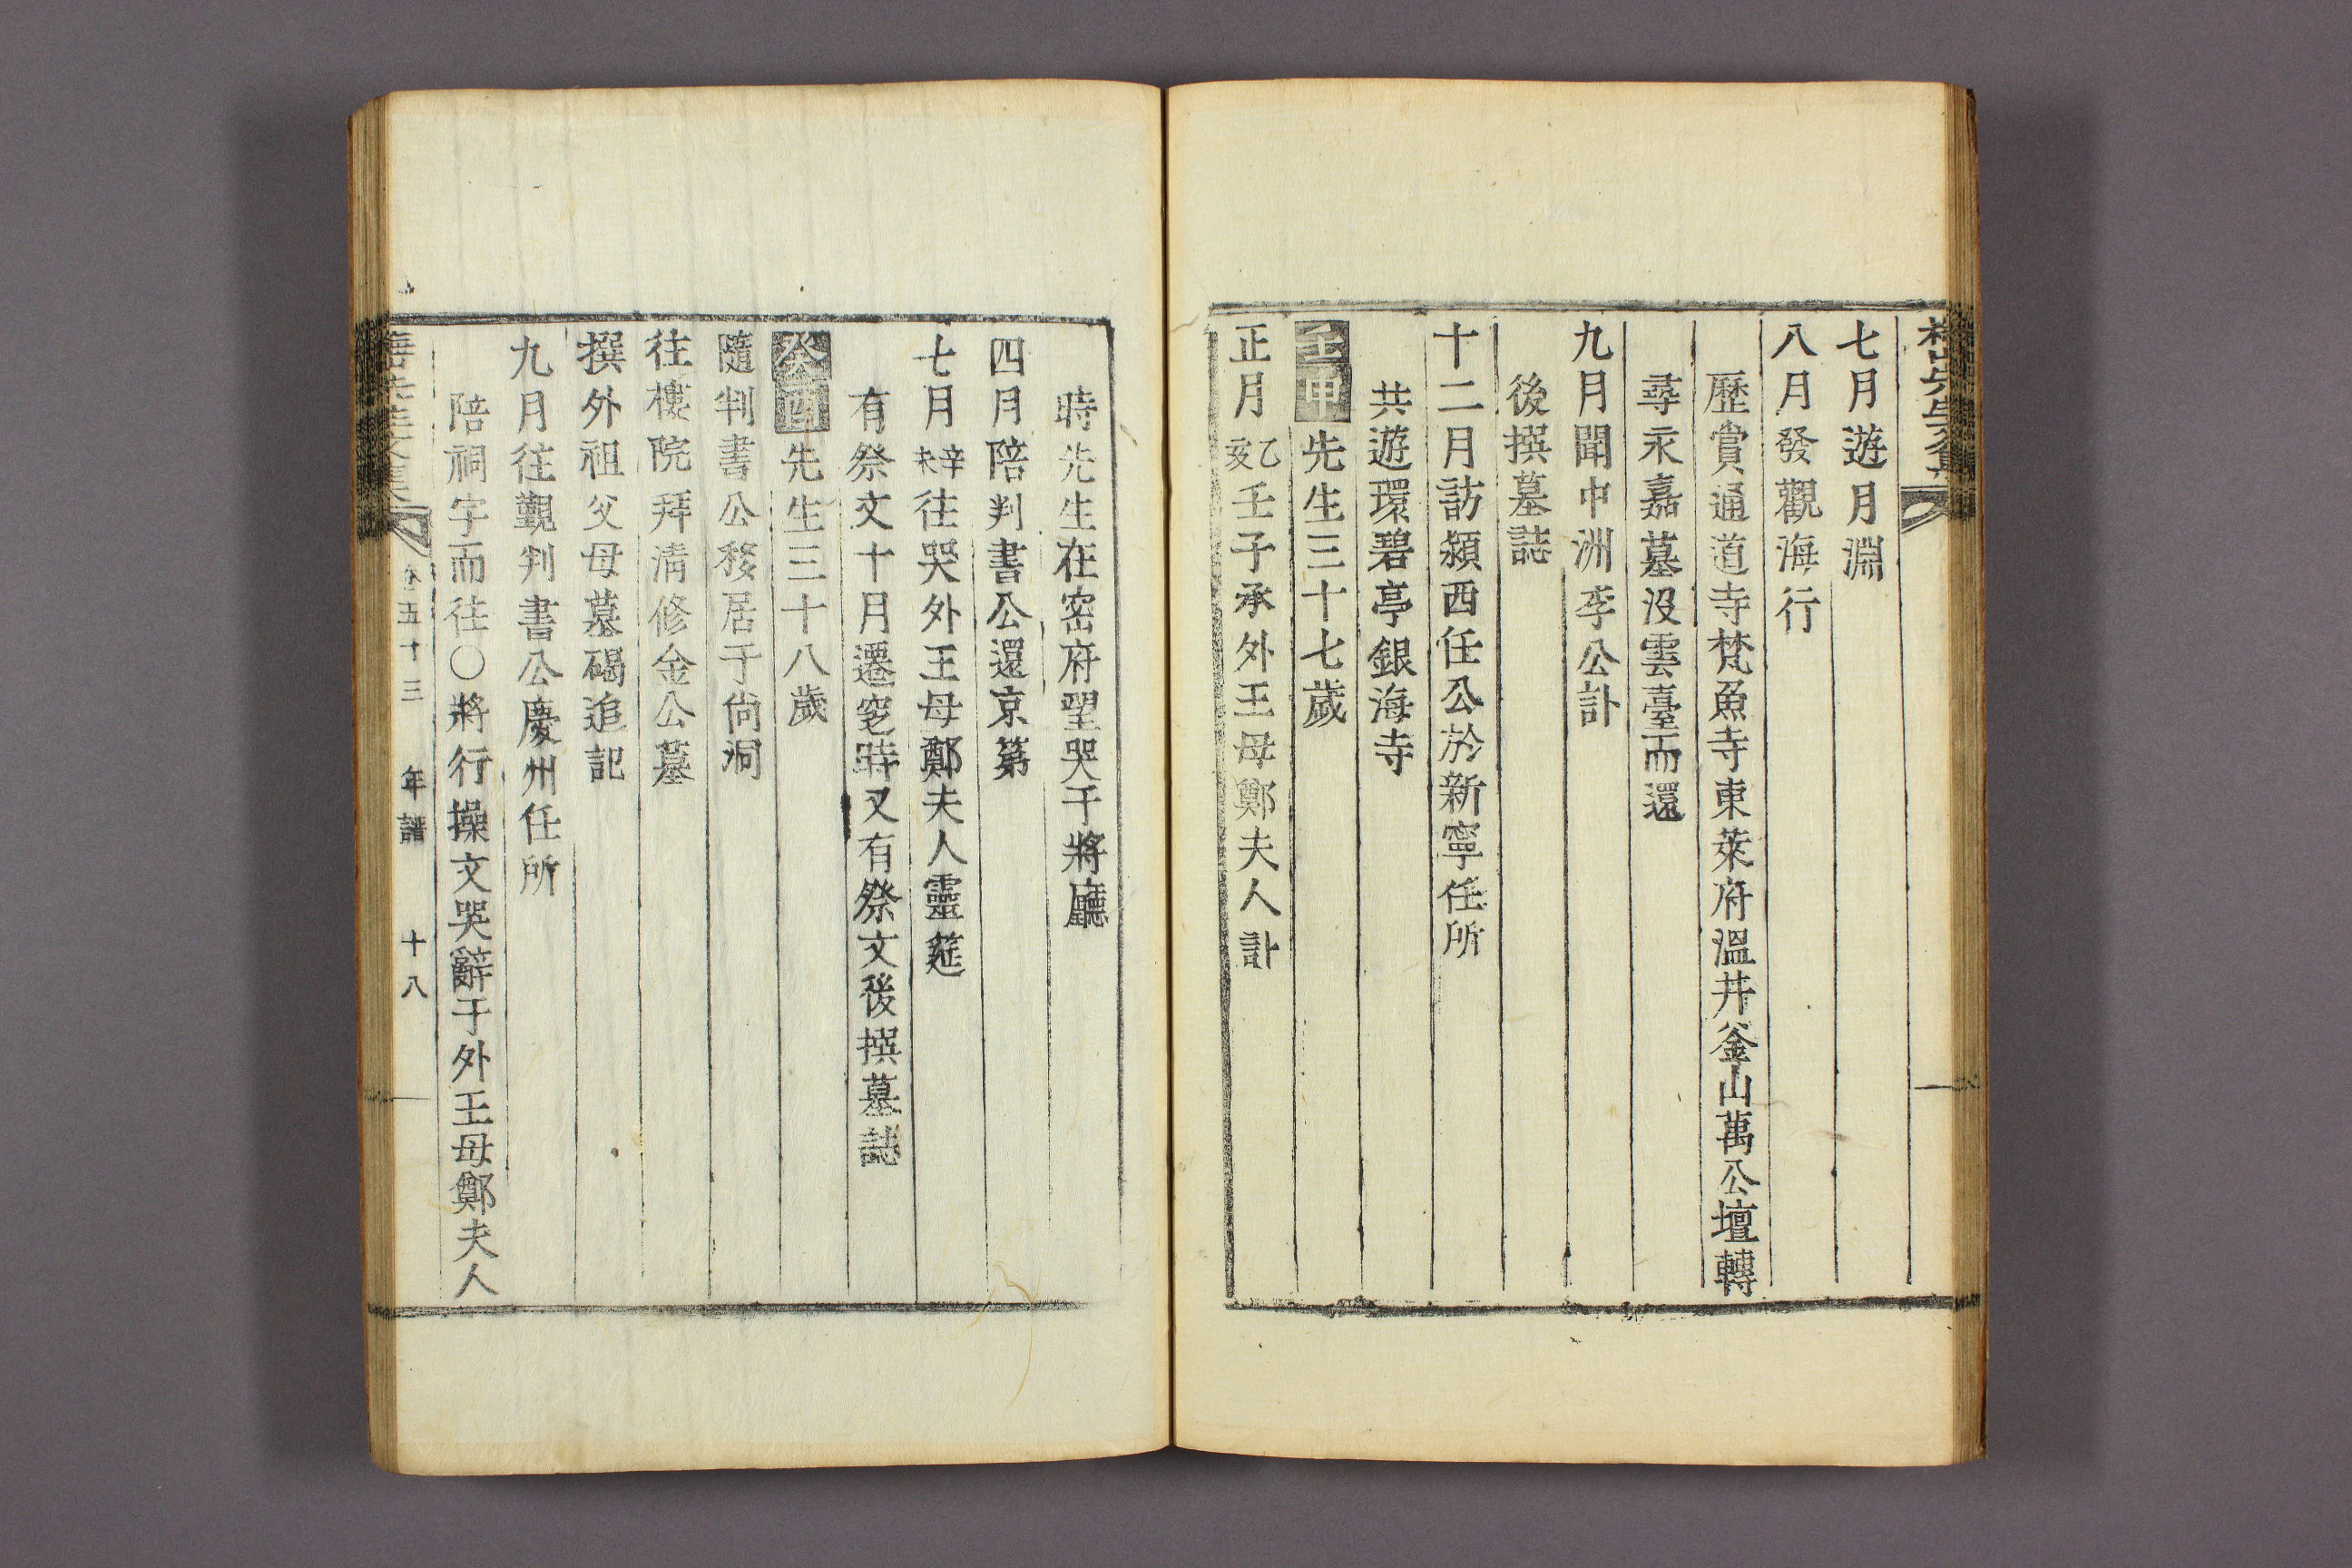 七月遊月淵
八月發觀海行
歷賞通道寺梵魚寺東萊府溫井釜山萬公壇轉
尋永嘉墓沒雲臺而還
九月聞中洲李公訃
後撰墓誌
十二月訪潁西任公於新寧任所
共遊環碧亭銀海寺
壬申先生三十七歲
正月乙亥壬子承外王母鄭夫人訃
時先生在密府望哭于將廳
四月陪判書公還京第
七月辛未往哭外王母鄭夫人靈筵
有祭文十月遷窆時又有祭文後撰墓誌
癸酉先生三十八歲
隨判書公移居于尙洞
往樓院拜淸修金公墓
撰外祖父母墓碣追記
九月往覲判書公慶州任所
陪祠宇而往〇將行操文哭辭于外王母鄭夫人
卷五十三 年譜 十八